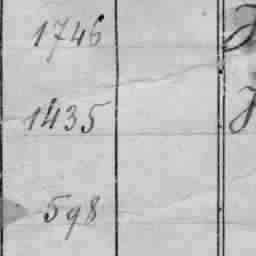 1746
1435
598